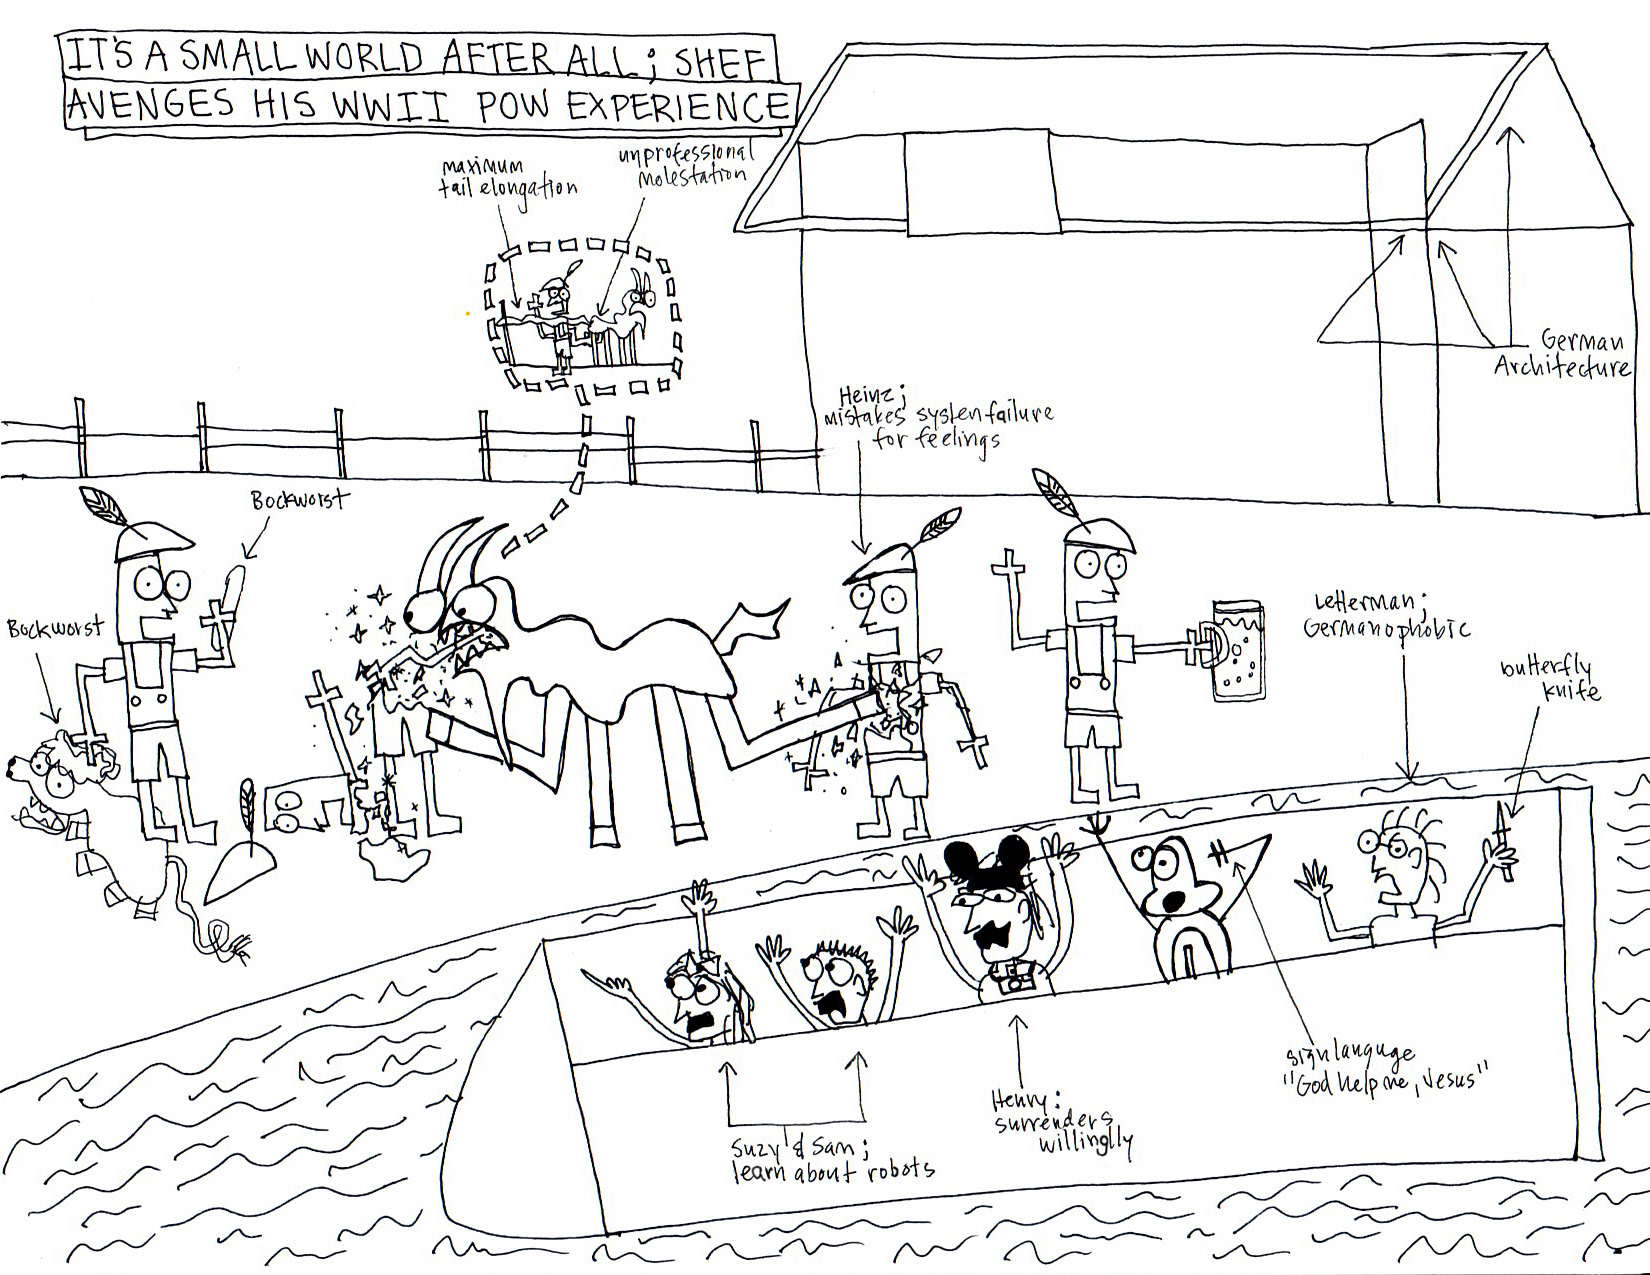 IT'S A SMALL WORLD AFTER ALL; SHEF
AVENGES HIS WWII POW EXPERIENCE
maximum
tail elongation
unprofessional
molestation
German
Architecture
Heinz;
mistakes systen failure
for feelings
Bockworst
Bockworst
Letterman;
Germanophobic
butterfly
knife
sign languge
"God help me, Jesus"
Henry:
surrenders
willinglly
Suzy & Sam;
learn about robots